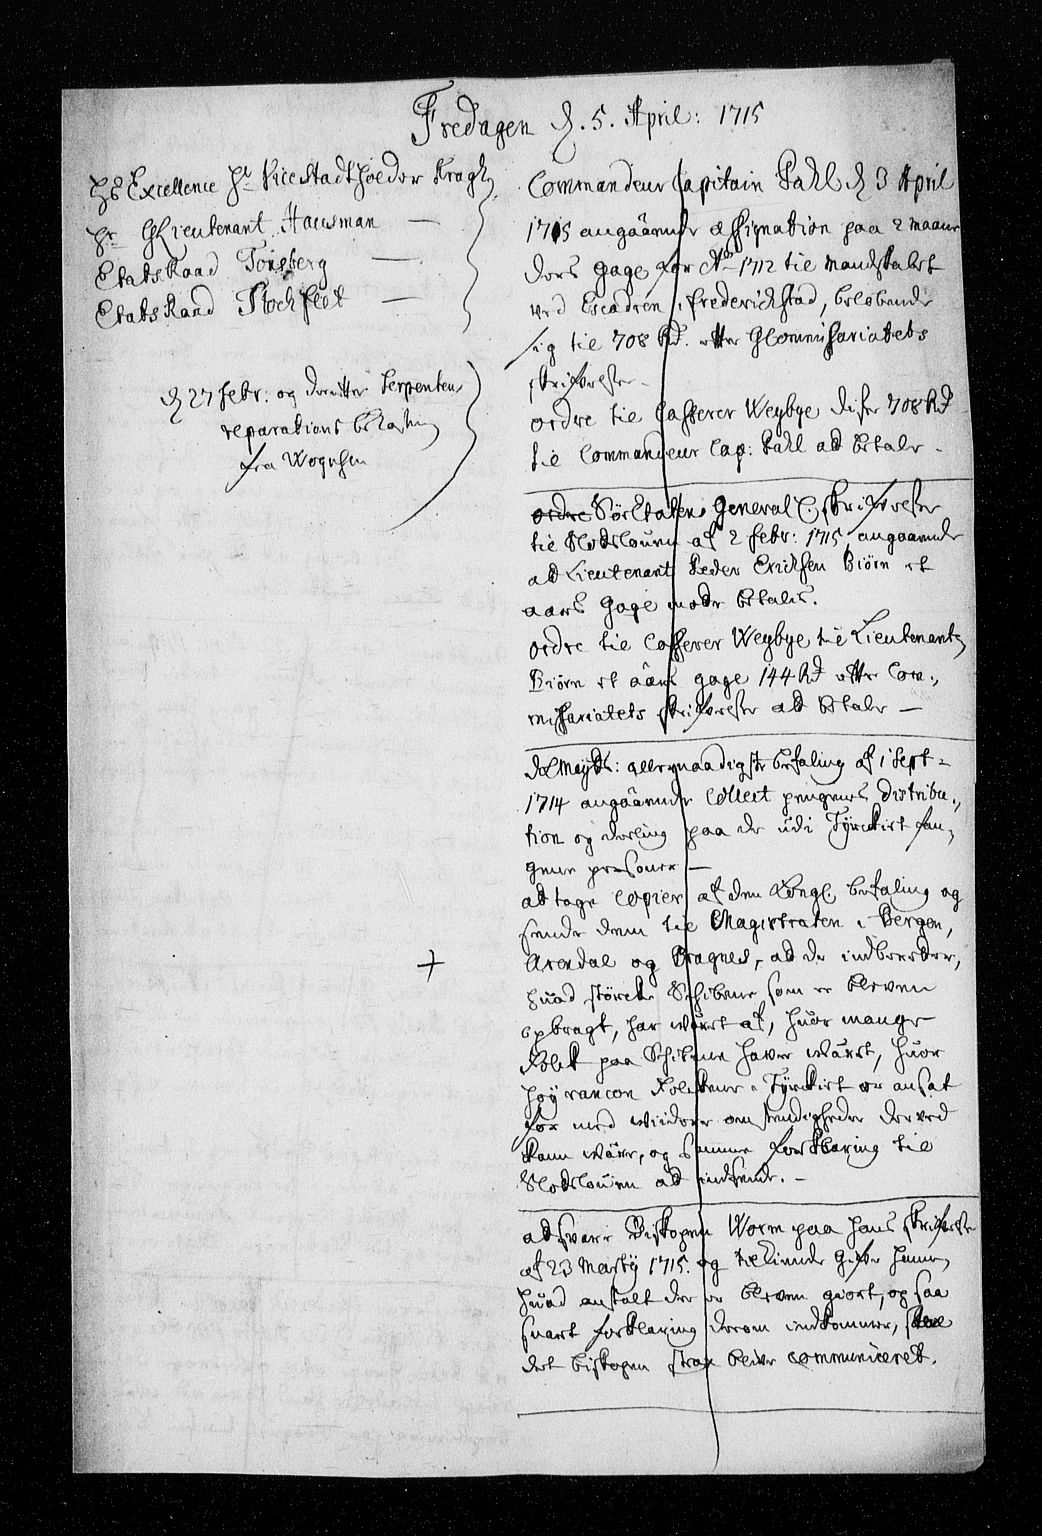 Fredagen d. 5. April: 1715
Hs Excellence Hr Vice Stadtholder Kragh
Hr GLieutenant Hausman —
Etats Raad Tonsberg —
Etats Raad Stockflet —
d 27 febr: og derefter Serpentens
reparations bekostn
fra Wognsen
Commandeur Capitain Pahl d 3 April
1715 angaaende assignation paa 2 maane
ders gage for Ao 1712 til Mandskabet
ved Escadren i Frederichstad, beløbende
sig til 708 Rd. efter GCommissariatets
skrifvelse.
ordre til Casserer Weybye disse 708 Rd
til Commandeur Cap: Pahl ad betale.
ordre SøeEtatens General C. skrifvelse
til Slodslouen af 2 febr: 1715, angaaende
ad Lieutenant Peder Erichsen Biørn et
aars gage maate betales.
ordre til Casserer Weybye til Lieutenant
Biørn et aars gage 144 Rd efter Com,,
missariatets skrifvelse ad betale —
Kl Mayts: allernaadigste befaling af 1 Sept=
1714 angaaende Collect pengenes distribu,,
tion og deeling paa de udi Tyrckiet fan,
gene personer —
ad tage Copier af den Kongl. befaling og
sende dem til Magistraten i Bergen,
Arendal og Bragnes, ad de indberetter,
huad störcke Schibene som er bleven
opbragt, har wäret af, huor mange
Folck paa Schibene haver wäret, huor
høy rancon Folckene i Tyrckiet er ansat
for med wiidere omstendigheder derved
kann wäre, og samme forklaring til
Slodslouen ad indsende. —
ad svare Biskopen Worm paa hans skrifvelse
af 23 Martij 1715. og tilkiende gifve hannem
huad anstalt der er bleven giort, og saa
snart forklaring derom indkommer, skal
det biskopen strax blive communiceret.